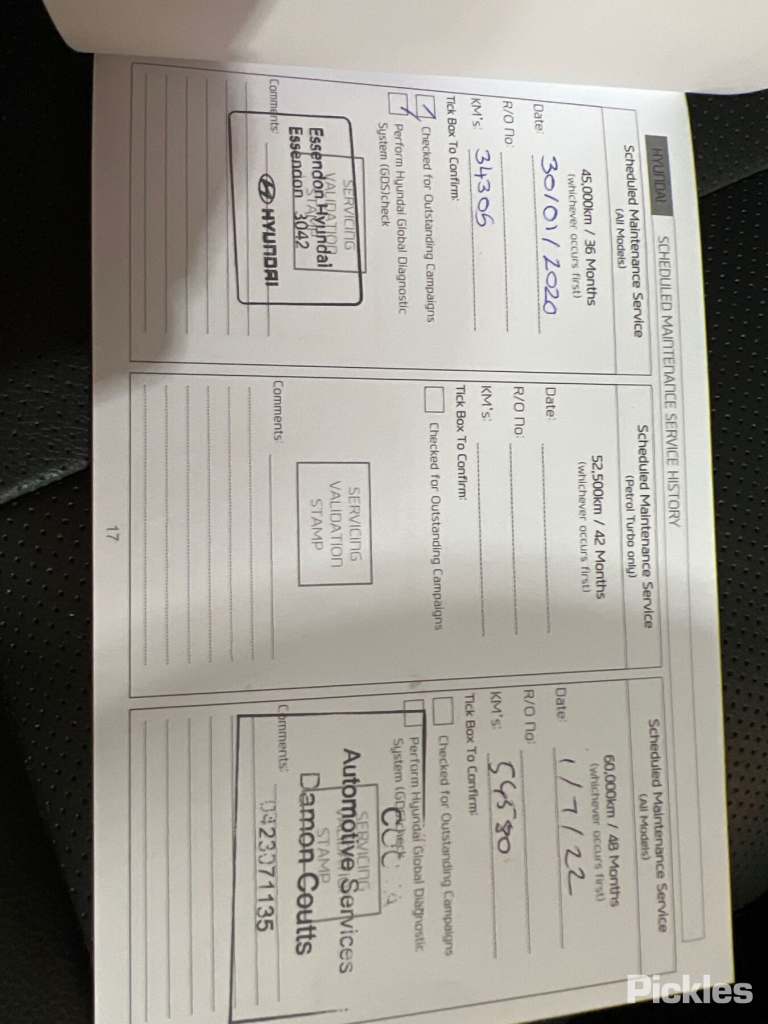 HYUNDAI SCHEDULED MAINTENANCE SERVICE HISTORY
Scheduled Maintenance Service
(All Models)
45,000km / 36 Months
(whichever occurs first)
Date: 30/01/2020
R/O No:
KM's: 34306
Tick Box To Confirm:
Checked for Outstanding Campaigns
Perform Hyundai Global Diagnostic
System (GDS)check
SERVICING
VALIDATION
STAMP
Essendon Hyundai
Essendon 3042
HYUNDAI
Comments:
Scheduled Maintenance Service
(Petrol Turbo only)
52,500km / 42 Months
(whichever occurs first)
Date:
R/O No:
KM's:
Tick Box To Confirm:
Checked for Outstanding Campaigns
SERVICING
VALIDATION
STAMP
Comments:
Scheduled Maintenance Service
(All Models)
60,000km / 48 Months
(whichever occurs first)
Date: 1/7/22
R/O No:
KM's: 54580
Tick Box To Confirm:
Checked for Outstanding Campaigns
Perform Hyundai Global Diagnostic
System (GDS)check
SERVICING
STAMP
Automotive Services
Damon Coutts
0423071135
Comments:
17
Pickles